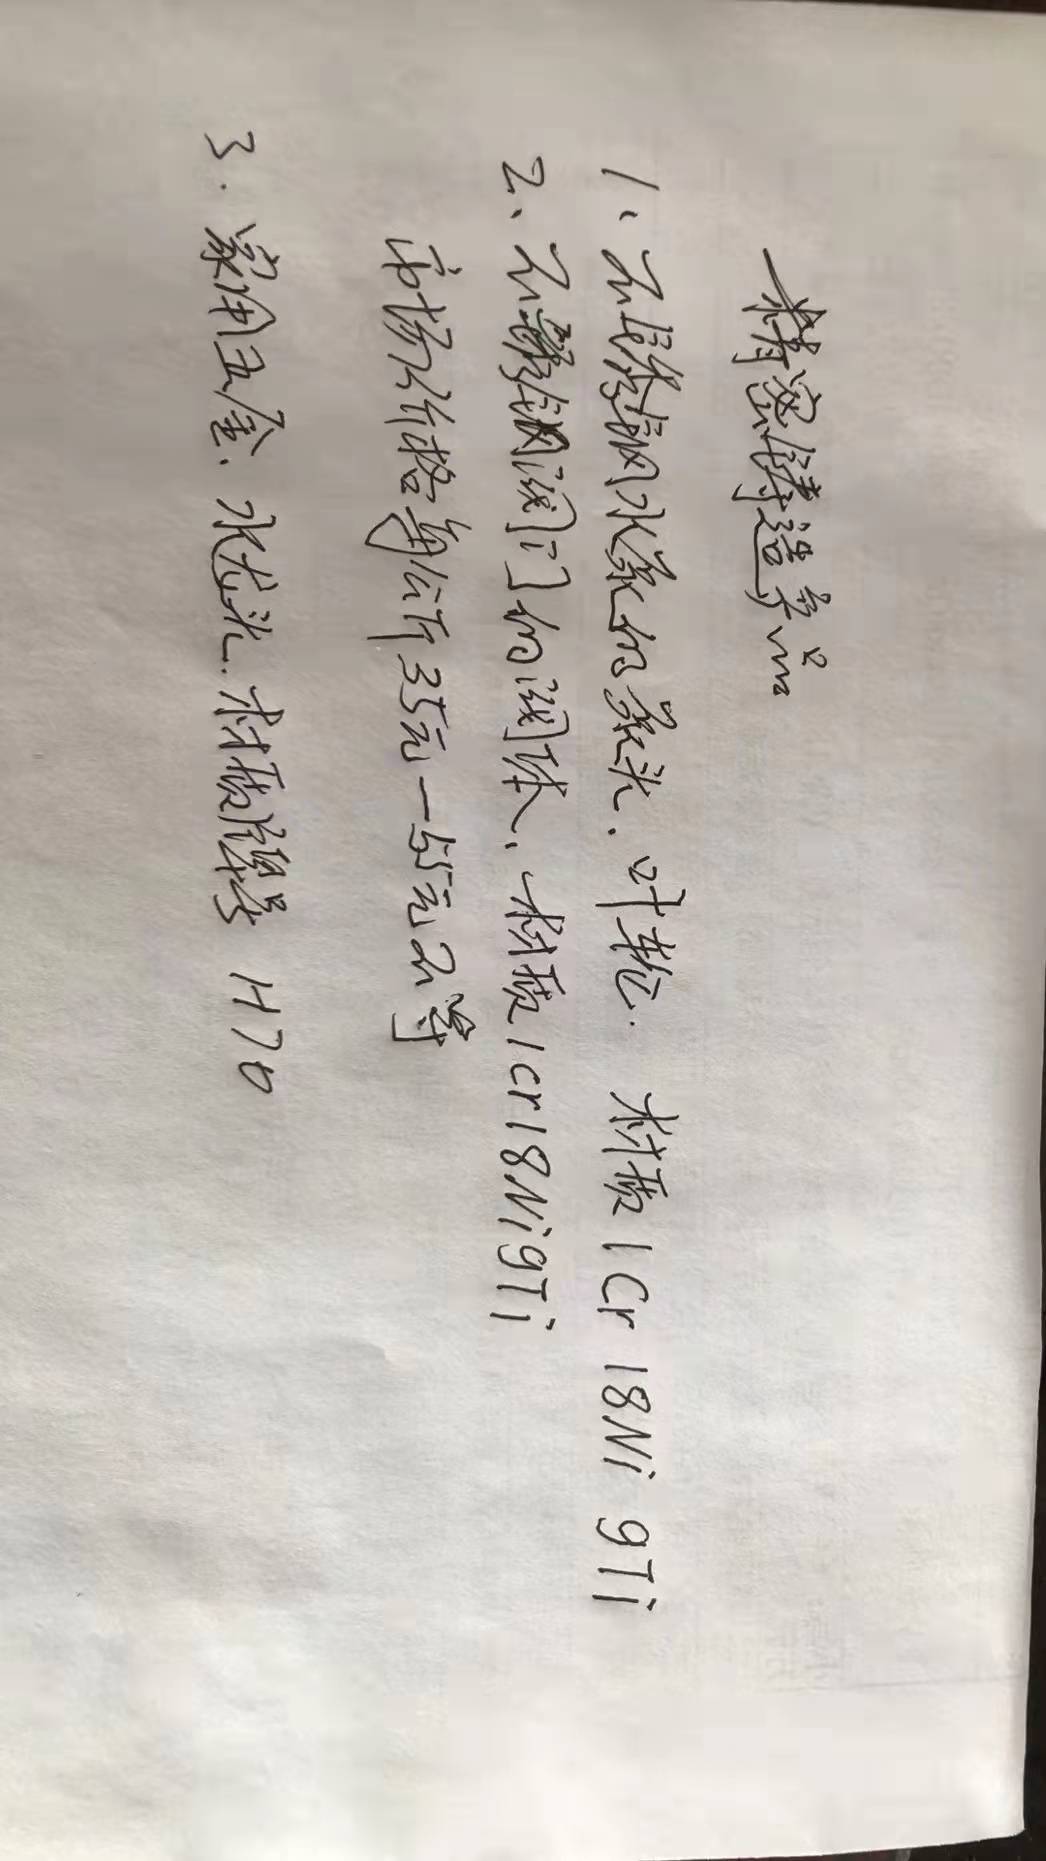 精密铸造产品
1、不锈钢水泵的泵头、叶轮. 材质1Cr18Ni9Ti
2、不锈钢阀门的阀体、材质1cr18Ni9Ti
市场价格每公斤35元一55元不等
3.家用五金、水龙头.材质牌号 H70